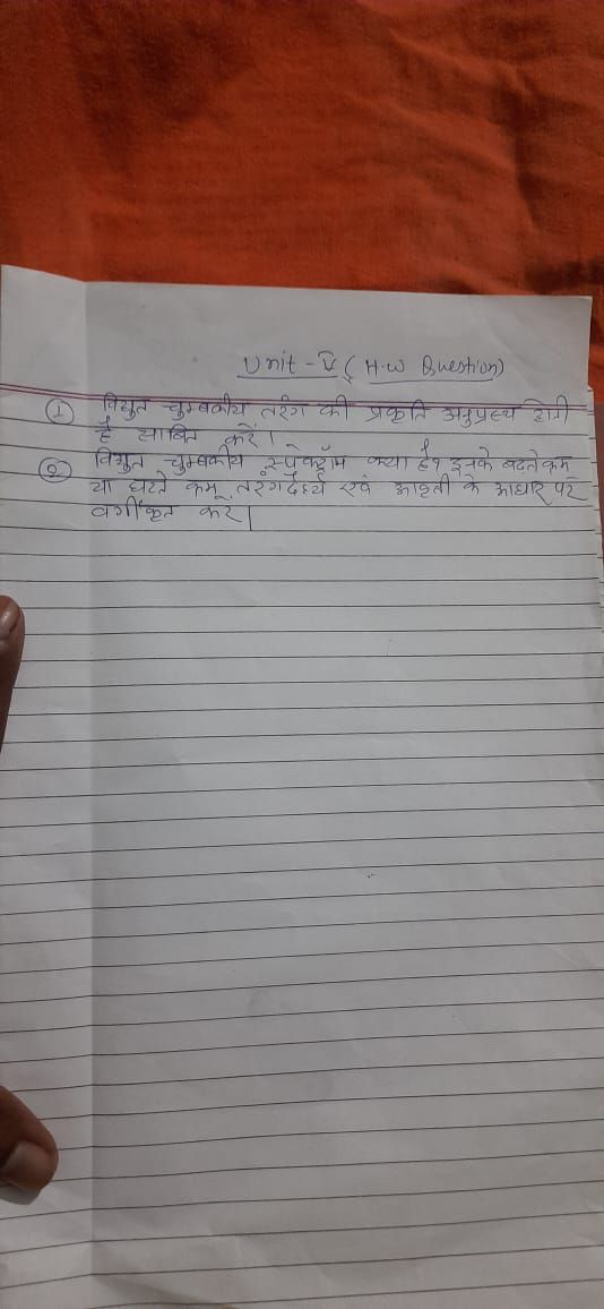 Unit - V ( H.W Question)
① विद्युत चुम्बकीय तरंग की प्रकृति अनुप्रस्थ होती
है साबित करें।
② विद्युत चुम्बकीय स्पेक्ट्रॉम क्या है? इनके बढ़ते क्रम
या घटते क्रम तरंगदैर्ध्य एवं आवृती के आधार पर
वर्गीकृत करें।